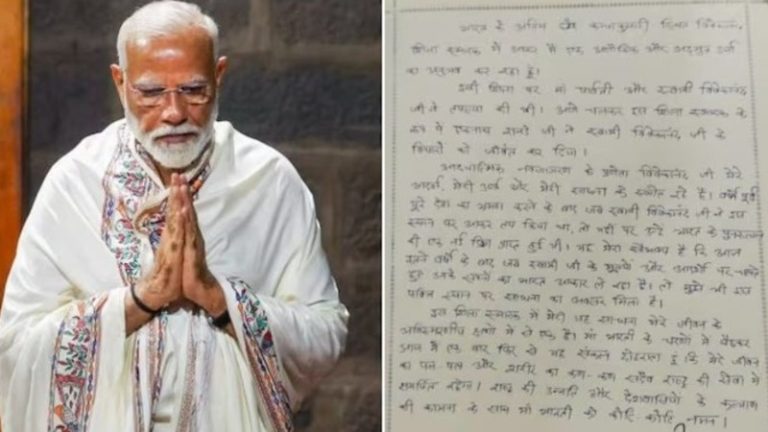 भारत के अंतिम छोर कन्याकुमारी स्थित विवेकानंद
शिला स्मारक में आकर मैं एक अलौकिक और अद्भुत ऊर्जा
का अनुभव कर रहा हूं।
इसी शिला पर मां पार्वती और स्वामी विवेकानंद
जी ने तपस्या की थी। आगे चलकर इस शिला स्मारक के
रूप में एकनाथ रानडे जी ने स्वामी विवेकानंद जी के
विचारों को जीवंत कर दिया।
आध्यात्मिक नवजागरण के प्रणेता विवेकानंद जी मेरे
आदर्श, मेरी ऊर्जा और मेरी साधना के स्रोत रहे हैं। वर्षों पूर्व
पूरे देश का भ्रमण करने के बाद जब स्वामी विवेकानंद जी ने इस
स्थान पर आकर तप किया था, तो यहीं पर उन्हें भारत के पुनरुत्थान
की एक नई दिशा प्राप्त हुई थी। यह मेरा सौभाग्य है कि आज
इतने वर्षों के बाद जब स्वामी जी के मूल्यों और आदर्शों पर चलते
हुए उनके सपनों का भारत आकार ले रहा है। तो मुझे भी इस
पवित्र स्थान पर साधना का अवसर मिला है।
इस शिला स्मारक में मेरी यह साधना मेरे जीवन के
अविस्मरणीय क्षणों में से एक है। मां भारती के चरणों में बैठकर
आज मैं एक बार फिर से यह संकल्प दोहराता हूं कि मेरे जीवन
का पल-पल और शरीर का कण-कण सदैव राष्ट्र की सेवा में
समर्पित रहेगा। राष्ट्र की उन्नति और देशवासियों के कल्याण
की कामना के साथ मां भारती को कोटि-कोटि नमन।